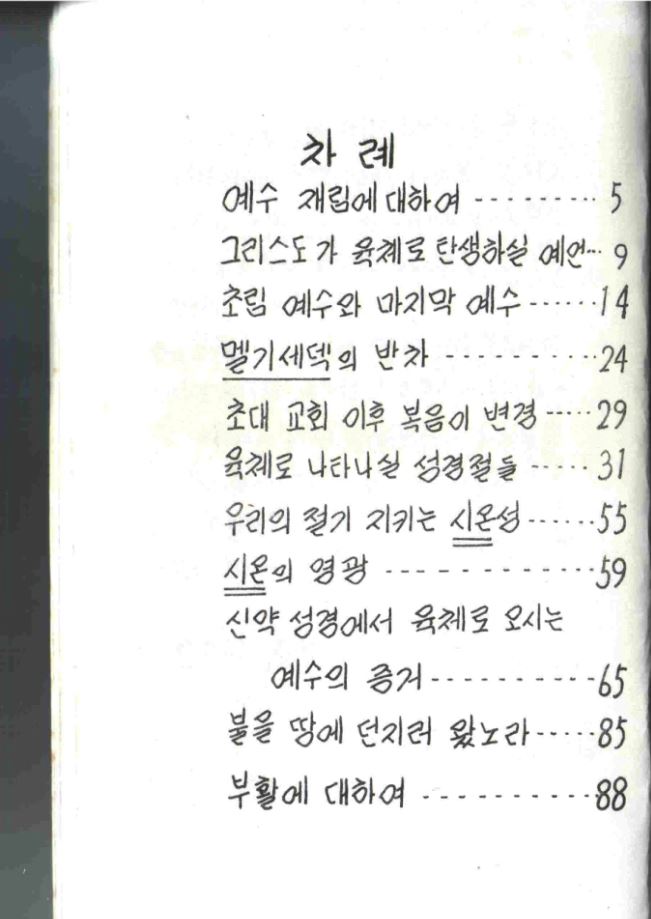 차 례
예수 재림에 대하여 --------- 5
그리스도가 육체로 탄생하실 예언--- 9
초림 예수와 마지막 예수 ------14
멜기세덱의 반차 ----------24
초대 교회 이후 복음이 변경 -----29
육체로 나타나실 성경절들 -----31
우리의 절기 지키는 시온성------55
시온의 영광 -------------59
신약 성경에서 육체로 오시는
예수의 증거----------65
불을 땅에 던지러 왔노라-----85
부활에 대하여 -----------88